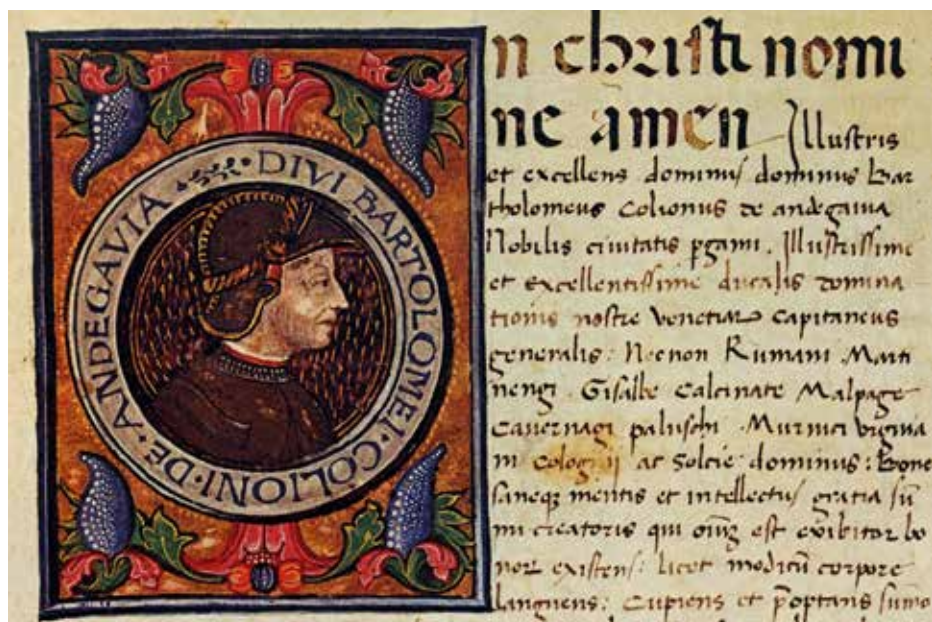 DIVI BARTOLOMEI · COLIONI · DE · ANDEGAVIA
n christi nomi
ne amen Illustris
et excellens dominus dominus Bar
tholomeus Colionus de andegavia
Nobilis civitatis pgami. Illustrissime
et excellentissime ducalis domina
tionis nostre Venetiar capitaneus
generalis: Necnon Rumani Marti
nengi. Gisalbe Calcinate Malpage
Cavernagi paluschi Murnici Urgnia
ni Cologni ac Solcie dominus: Bone
saneque mentis et intellectus gratia sum
mi creatoris qui est exibitor bo
nor existens: licet modicū corpore
languens: Cupiens et p̄optans sumo